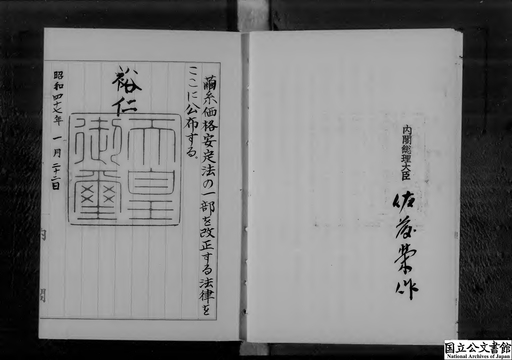 繭糸価格安定法の一部を改正する法律を
ここに公布する。
裕仁
天皇
御璽
昭和四十七年一月二十二日
内閣総理大臣
佐藤栄作
国立公文書館
National Archives of Japan